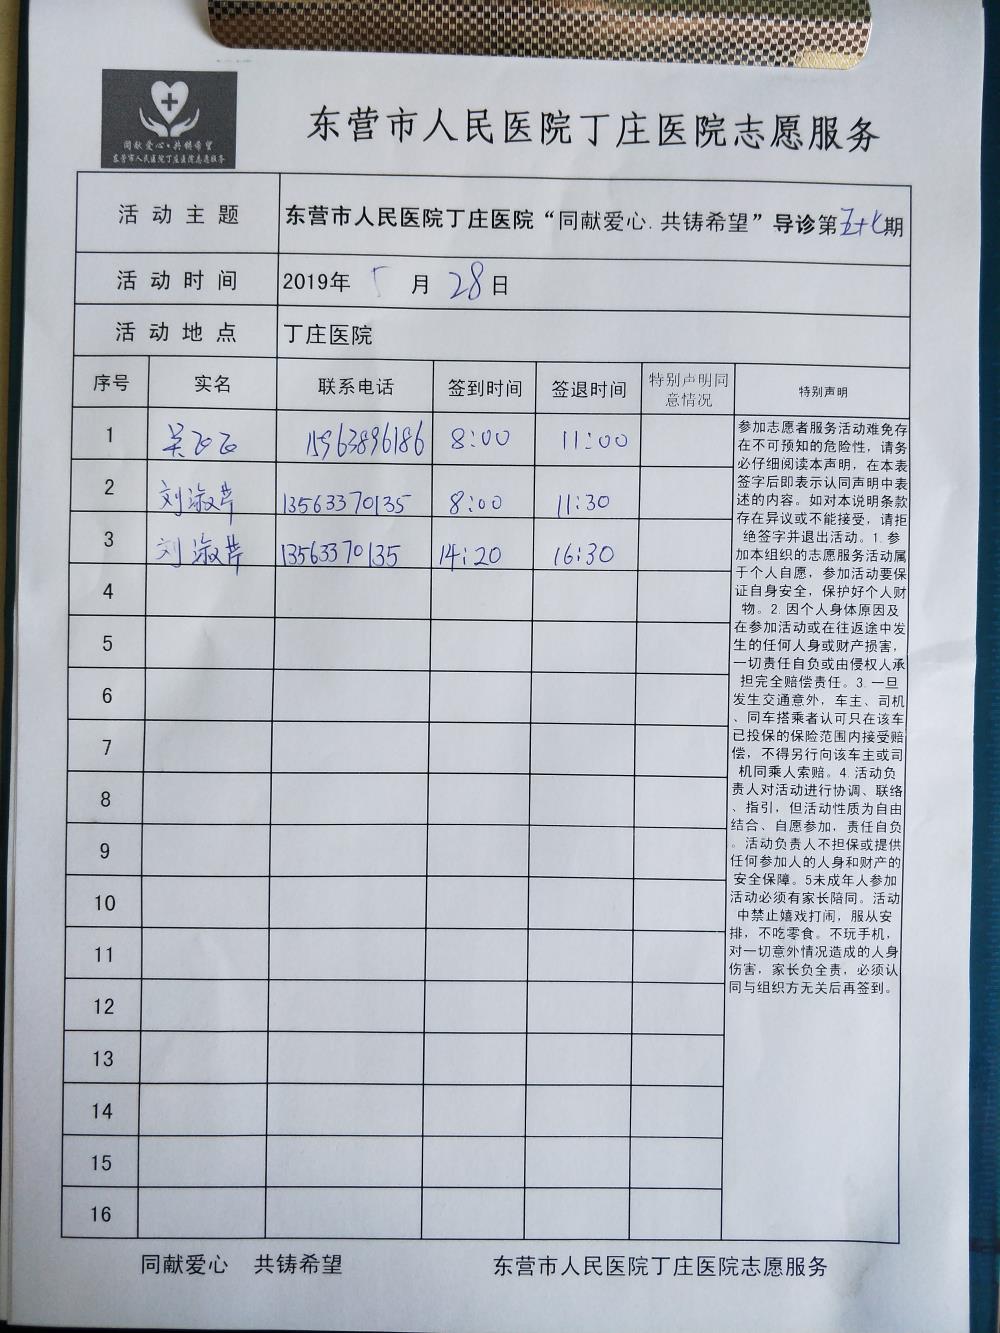 同献爱心·共铸希望
东营市人民医院丁庄医院志愿服务
东营市人民医院丁庄医院志愿服务
活动主题 东营市人民医院丁庄医院“同献爱心.共铸希望”导诊第五十七期
活动时间 2019年 5 月 28 日
活动地点 丁庄医院
序号 实名 联系电话 签到时间 签退时间 特别声明同意情况 特别声明
1 吴飞飞 15963896186 8:00 11:00
2 刘淑芹 13563370135 8:00 11:30
3 刘淑芹 13563370135 14:20 16:30
4
5
6
7
8
9
10
11
12
13
14
15
16
参加志愿者服务活动难免存
在不可预知的危险性，请务
必仔细阅读本声明，在本表
签字后即表示认同声明中表
述的内容。如对本说明条款
存在异议或不能接受，请拒
绝签字并退出活动。1.参
加本组织的志愿服务活动属
于个人自愿，参加活动要保
证自身安全，保护好个人财
物。2.因个人身体原因及
在参加活动或在往返途中发
生的任何人身或财产损害，
一切责任自负或由侵权人承
担完全赔偿责任。3.一旦
发生交通意外，车主、司机
、同车搭乘者认可只在该车
已投保的保险范围内接受赔
偿，不得另行向该车主或司
机同乘人索赔。4.活动负
责人对活动进行协调、联络
、指引，但活动性质为自由
结合、自愿参加，责任自负
。活动负责人不担保或提供
任何参加人的人身和财产的
安全保障。5未成年人参加
活动必须有家长陪同。活动
中禁止嬉戏打闹，服从安
排，不吃零食。不玩手机，
对一切意外情况造成的人身
伤害，家长负全责，必须认
同与组织方无关后再签到。
同献爱心 共铸希望 东营市人民医院丁庄医院志愿服务